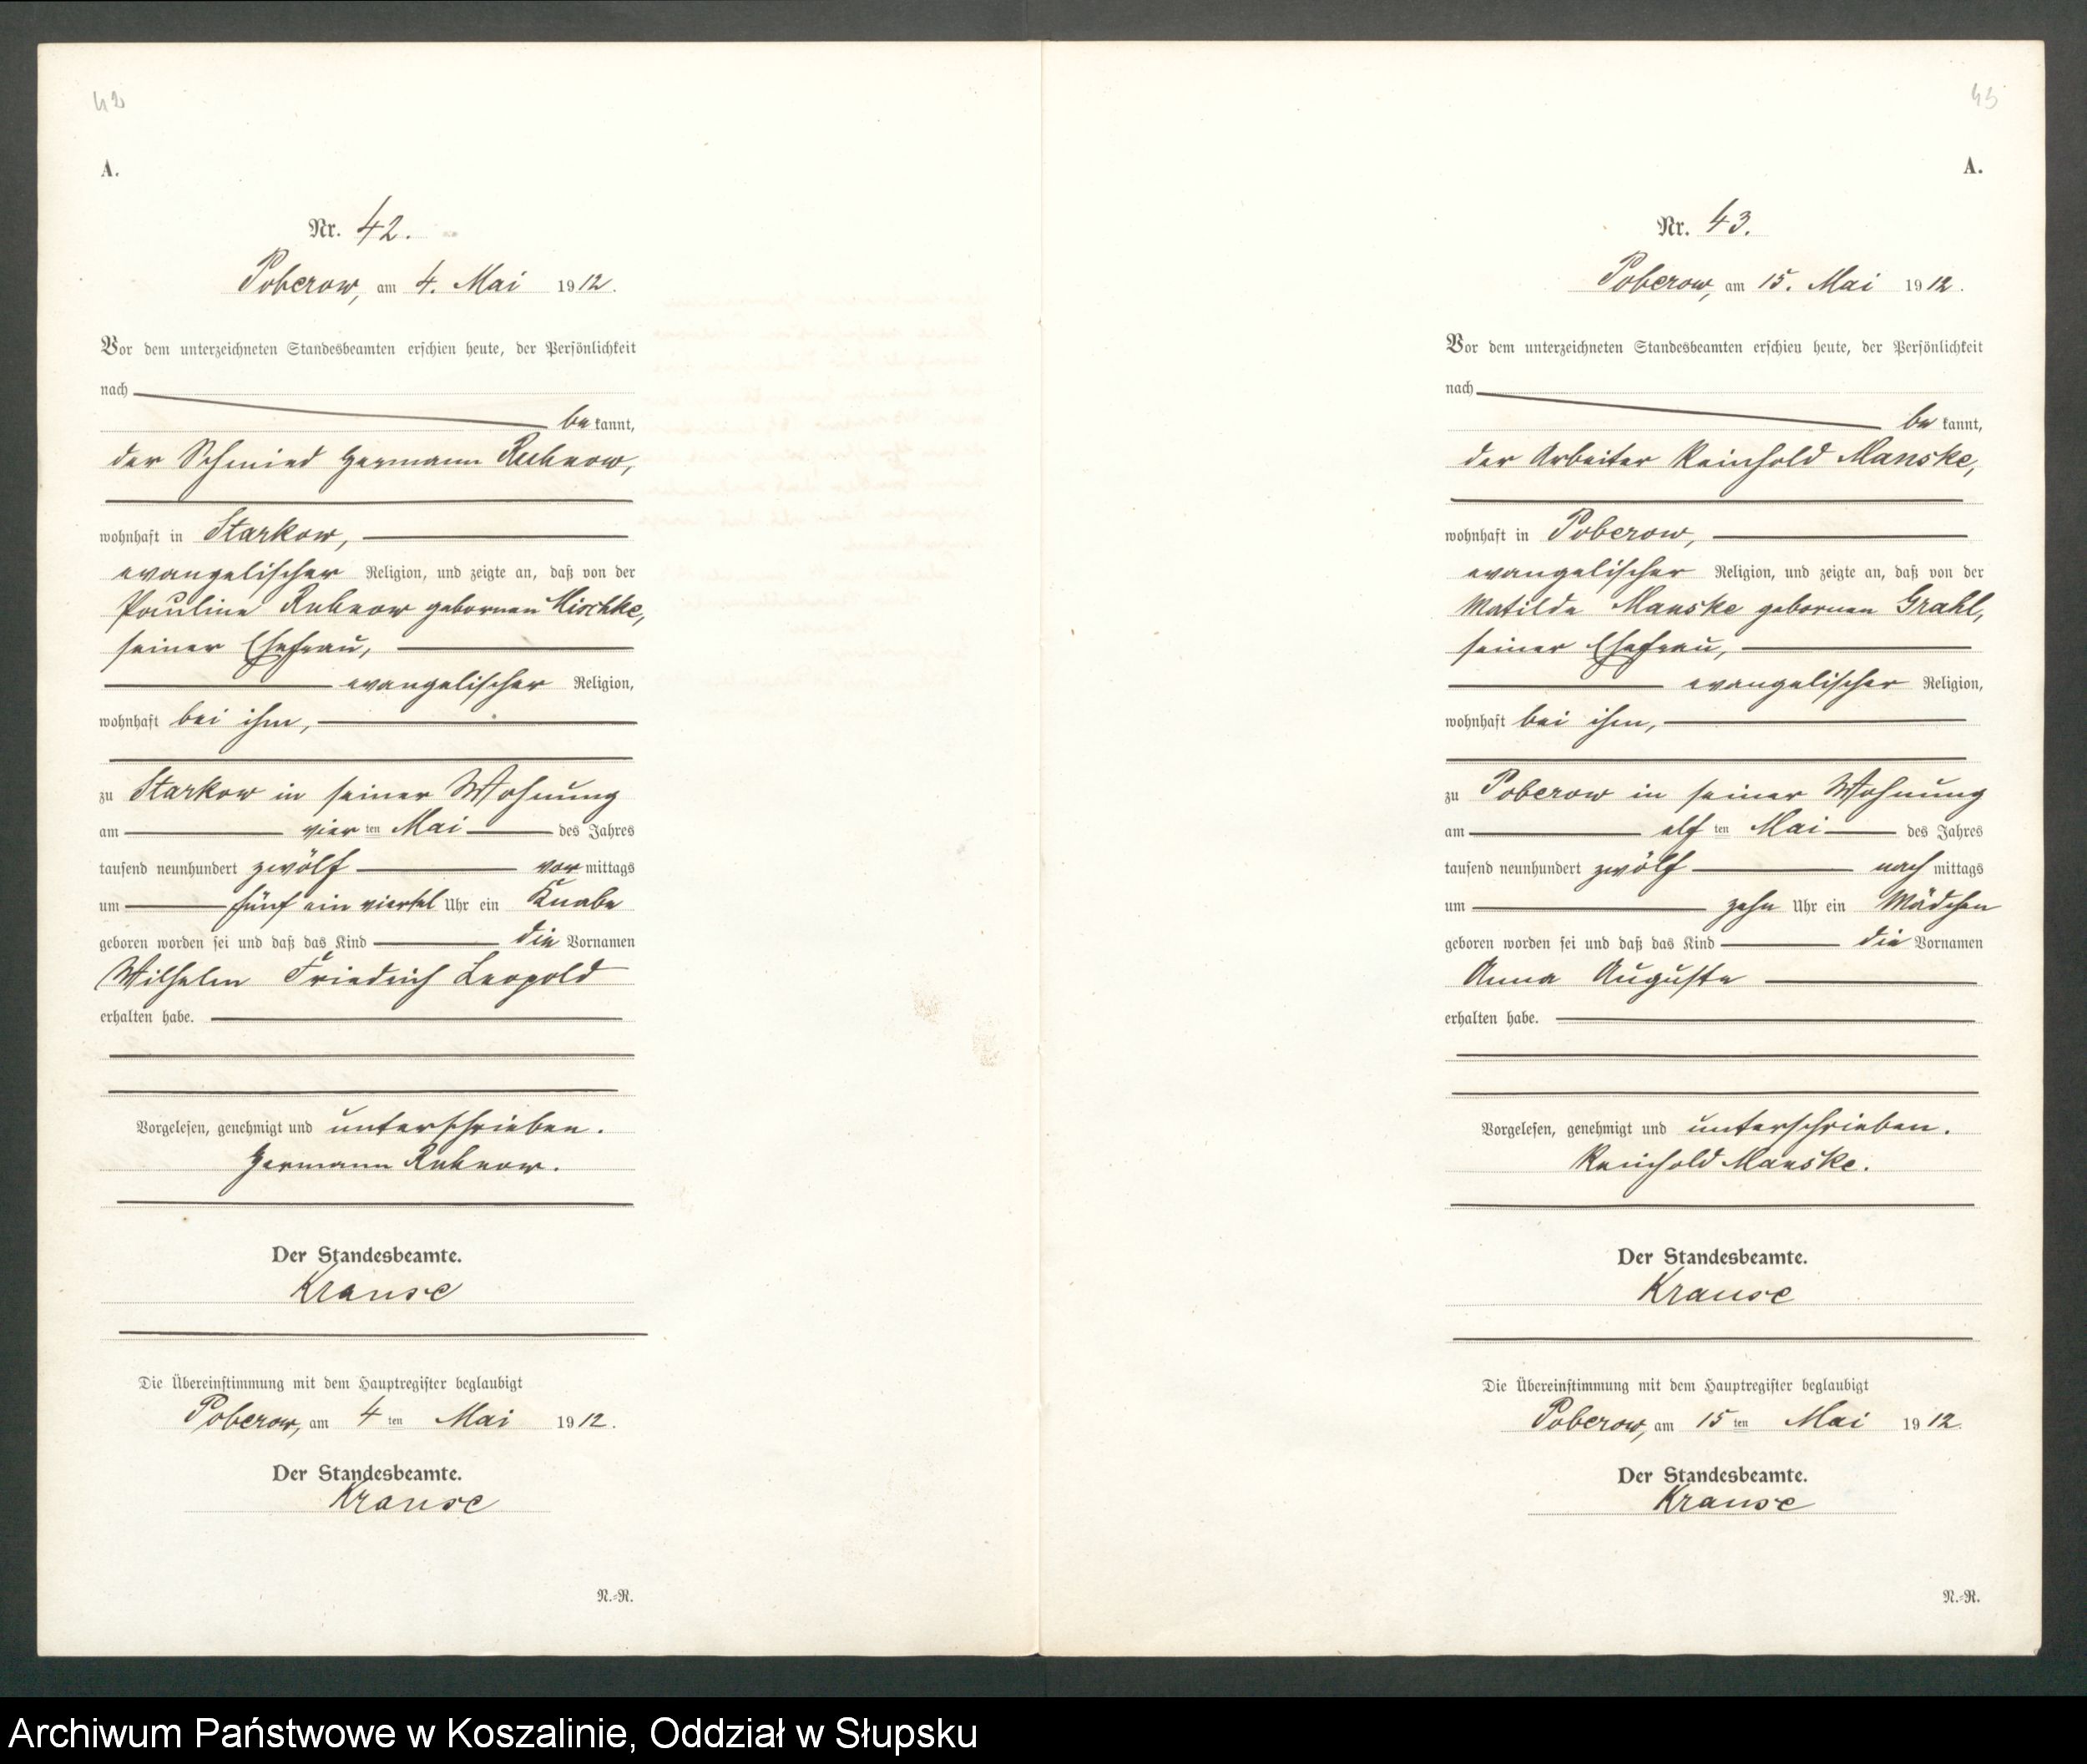 42
A.
Nr. 42.
Poberow, am 4. Mai 1912.
Vor dem unterzeichneten Standesbeamten erschien heute, der Persönlichkeit
nach
be kannt,
der Schmied Hermann Rubnow,
wohnhaft in Starkow,
evangelischer Religion, und zeigte an, daß von der
Pauline Rubnow gebornen Mischke,
seiner Ehefrau,
evangelischer Religion,
wohnhaft bei ihm,
zu Starkow in seiner Wohnung
am vier ten Mai des Jahres
tausend neunhundert zwölf vor mittags
um fünf ein viertel Uhr ein Knabe
geboren worden sei und daß das Kind die Vornamen
Wilhelm Friedrich Leopold
erhalten habe.
Vorgelesen, genehmigt und unterschrieben.
Hermann Rubnow.
Der Standesbeamte.
Krause
Die Übereinstimmung mit dem Hauptregister beglaubigt
Poberow, am 4 ten Mai 1912.
Der Standesbeamte.
Krause
N.-R.
43
A.
Nr. 43.
Poberow, am 15. Mai 1912.
Vor dem unterzeichneten Standesbeamten erschien heute, der Persönlichkeit
nach
be kannt,
der Arbeiter Reinhold Manske,
wohnhaft in Poberow,
evangelischer Religion, und zeigte an, daß von der
Matilde Manske gebornen Grahl,
seiner Ehefrau,
evangelischer Religion,
wohnhaft bei ihm,
zu Poberow in seiner Wohnung
am elf ten Mai des Jahres
tausend neunhundert zwölf nach mittags
um zehn Uhr ein Mädchen
geboren worden sei und daß das Kind die Vornamen
Anna Auguste
erhalten habe.
Vorgelesen, genehmigt und unterschrieben.
Reinhold Manske.
Der Standesbeamte.
Krause
Die Übereinstimmung mit dem Hauptregister beglaubigt
Poberow, am 15 ten Mai 1912.
Der Standesbeamte.
Krause
N.-R.
Archiwum Państwowe w Koszalinie, Oddział w Słupsku